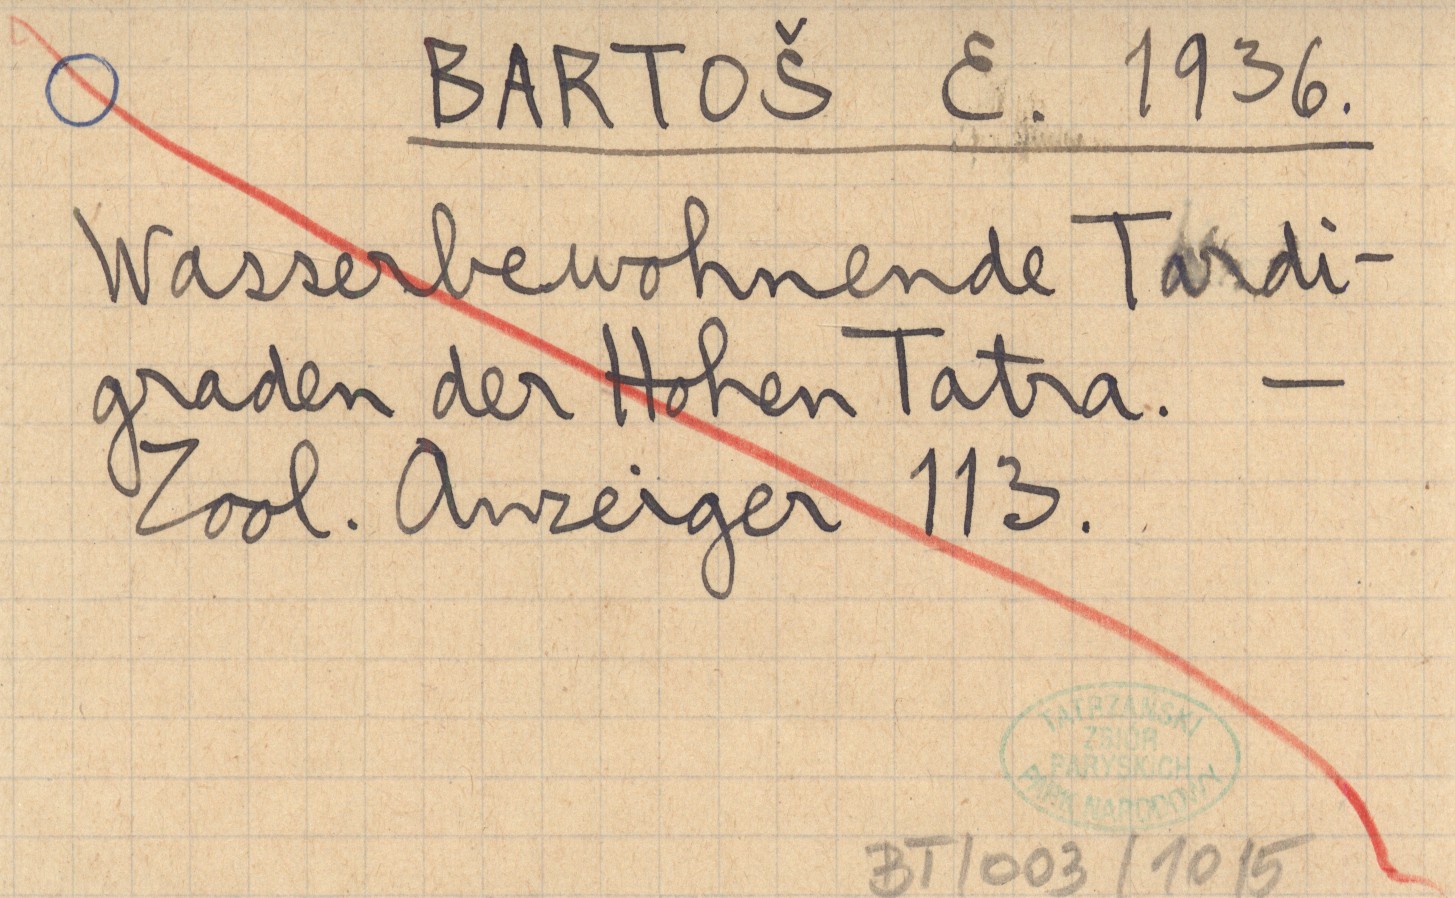 BARTOŠ E. 1936.
Wasserbewohnende Tardi-
graden der Hohen Tatra. —
Zool. Anzeiger 113.
TATRZAŃSKI
ZBIÓR
PARYSKICH
PARK NARODOWY
BT/003/10/5